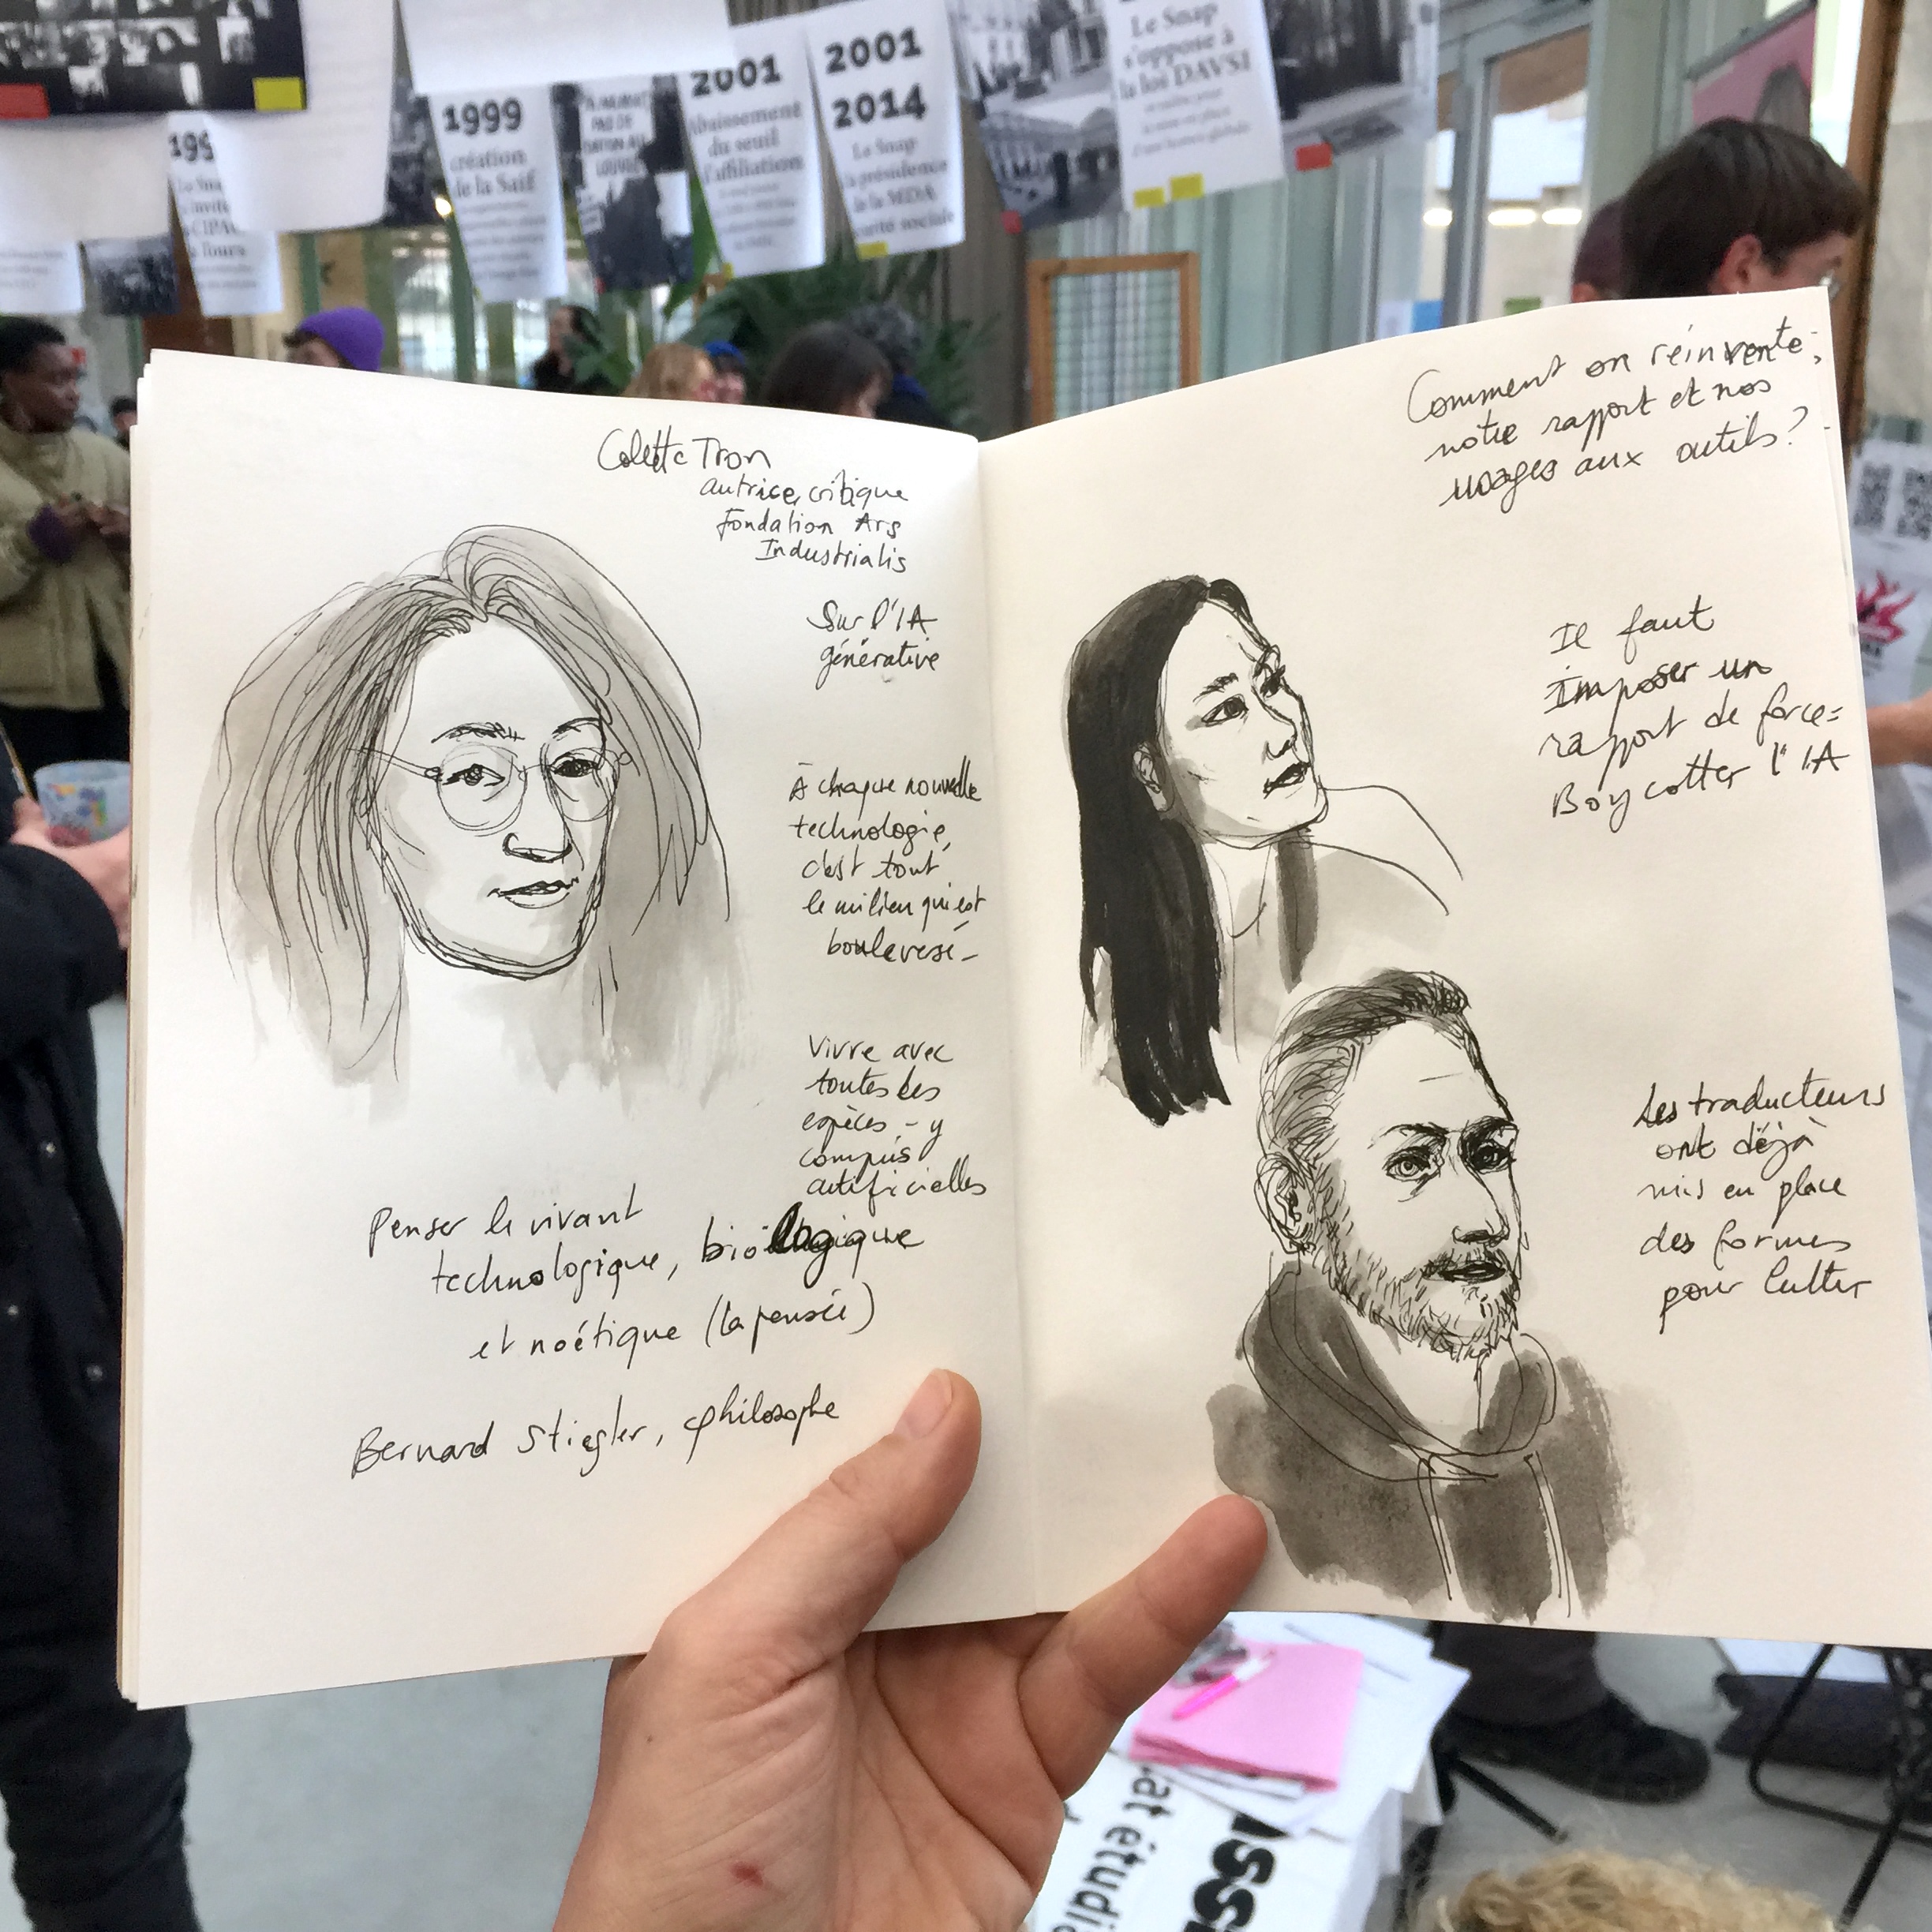 1999
création
de la Saif
2001
du seuil
2001
2014
Le Snap
Le Snap
s'oppose à
la loi DAVSI
Colette Tron
autrice, critique
fondation Ars
Industrialis
Sur l'IA
générative
À chaque nouvelle
technologie,
c'est tout
le milieu qui est
bouleversé -
Vivre avec
toutes les
espèces - y
compris
artificielles
Penser le vivant
technologique, biologique
et noétique (la pensée)
Bernard Stiegler, philosophe
Comment on réinvente
notre rapport et nos
usages aux outils?
Il faut
imposer un
rapport de force =
Boycotter l'IA
Les traducteurs
ont déjà
mis en place
des formes
pour lutter